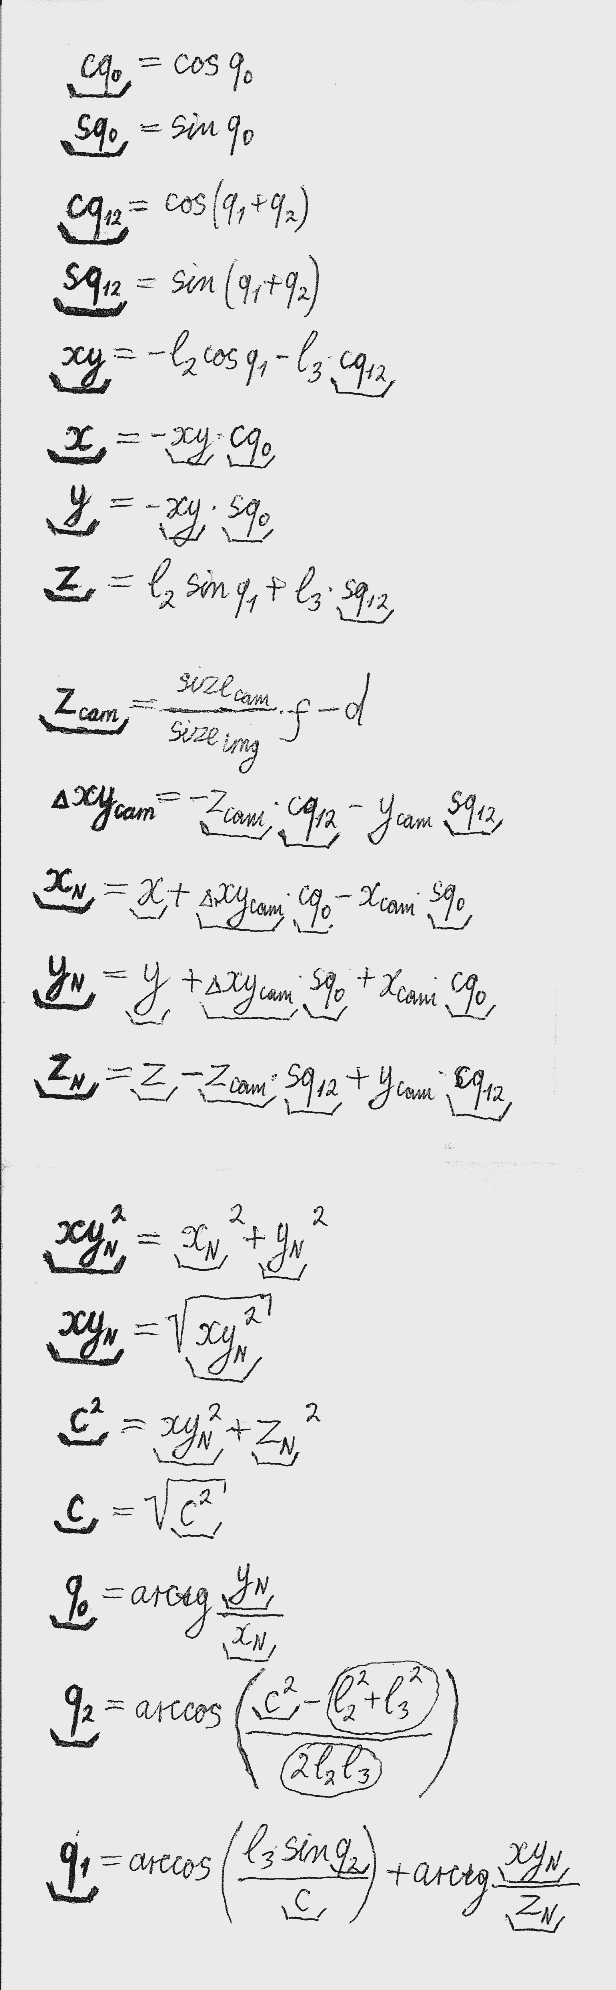 cq₀ = cos q₀
sq₀ = sin q₀
cq₁₂ = cos(q₁+q₂)
sq₁₂ = sin(q₁+q₂)
xy = -l₂cosq₁ - l₃·cq₁₂
x = -xy·cq₀
y = -xy·sq₀
z = l₂ sin q₁ + l₃·sq₁₂
z_cam = size_cam/size_img · f - d
Δxy_cam = -z_cam·cq₁₂ - y_cam sq₁₂
x_N = x + Δxy_cam·cq₀ - x_cam·sq₀
y_N = y + Δxy_cam·sq₀ + x_cam·cq₀
z_N = z - z_cam·sq₁₂ + y_cam·cq₁₂
xy_N² = x_N² + y_N²
xy_N = √(xy_N²)
c² = xy_N² + z_N²
c = √(c²)
q₀ = arctg y_N/x_N
q₂ = arccos((c² - (l₂² + l₃²))/(2l₂l₃))
q₁ = arccos((l₃ sin q₂)/c) + arctg xy_N/z_N